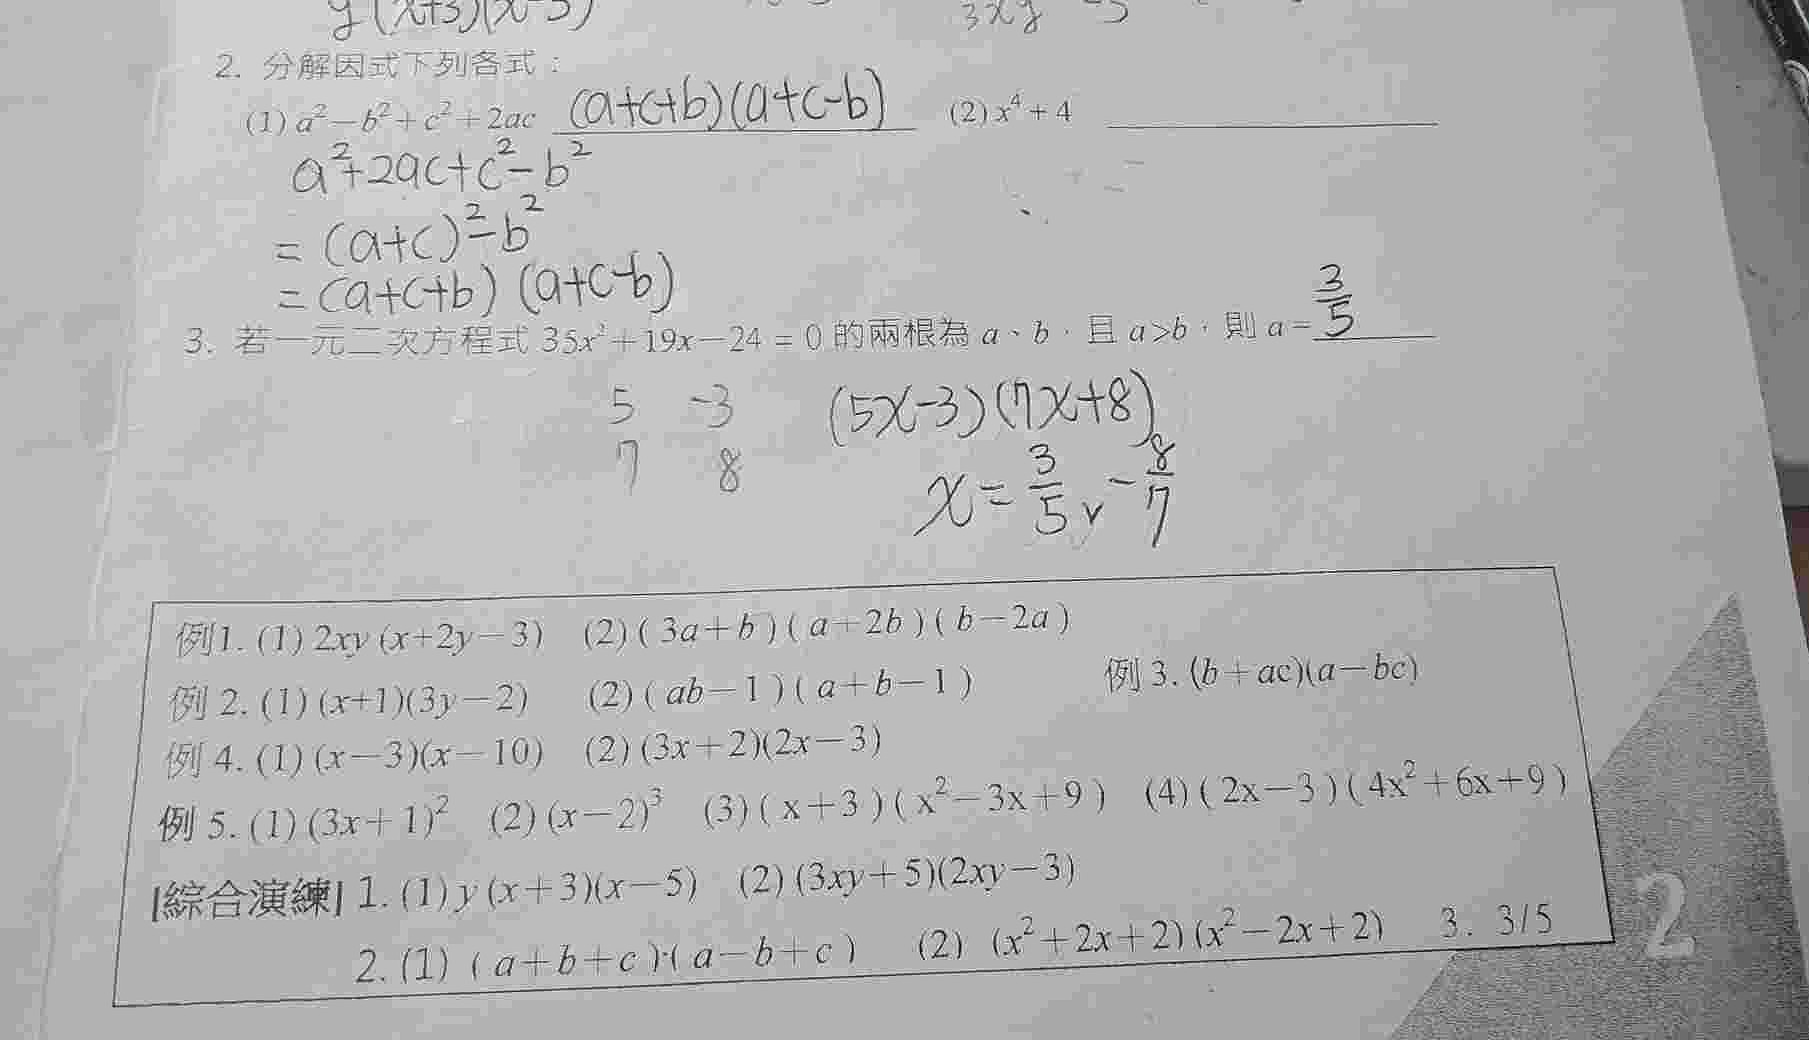 y(x+3)(x-5)
3xy -3
2. 分解因式下列各式：
(1) a²－b²＋c²＋2ac (a+c+b)(a+c-b) (2) x⁴＋4
a²+2ac+c²-b²
= (a+c)²-b²
= (a+c+b)(a+c-b)
3. 若一元二次方程式 35x²＋19x－24 = 0 的兩根為 a、b，且 a>b，則 a = 3/5
5 -3 (5x-3)(7x+8)
7 8 x = 3/5, -8/7
例1. (1) 2xy (x+2y－3) (2) ( 3a＋b ) ( a－2b ) ( b－2a )
例 2. (1) (x+1)(3y－2) (2) ( ab－1 ) ( a＋b－1 ) 例 3. (b＋ac)(a－bc)
例 4. (1) (x－3)(x－10) (2) (3x＋2)(2x－3)
例 5. (1) (3x＋1)² (2) (x－2)³ (3) ( x＋3 ) ( x²－3x＋9 ) (4) ( 2x－3 ) ( 4x²＋6x＋9 )
[綜合演練] 1. (1) y (x＋3)(x－5) (2) (3xy＋5)(2xy－3)
2. (1) ( a＋b＋c )·( a－b＋c ) (2) (x²＋2x＋2) (x²－2x＋2) 3. 3/5
2